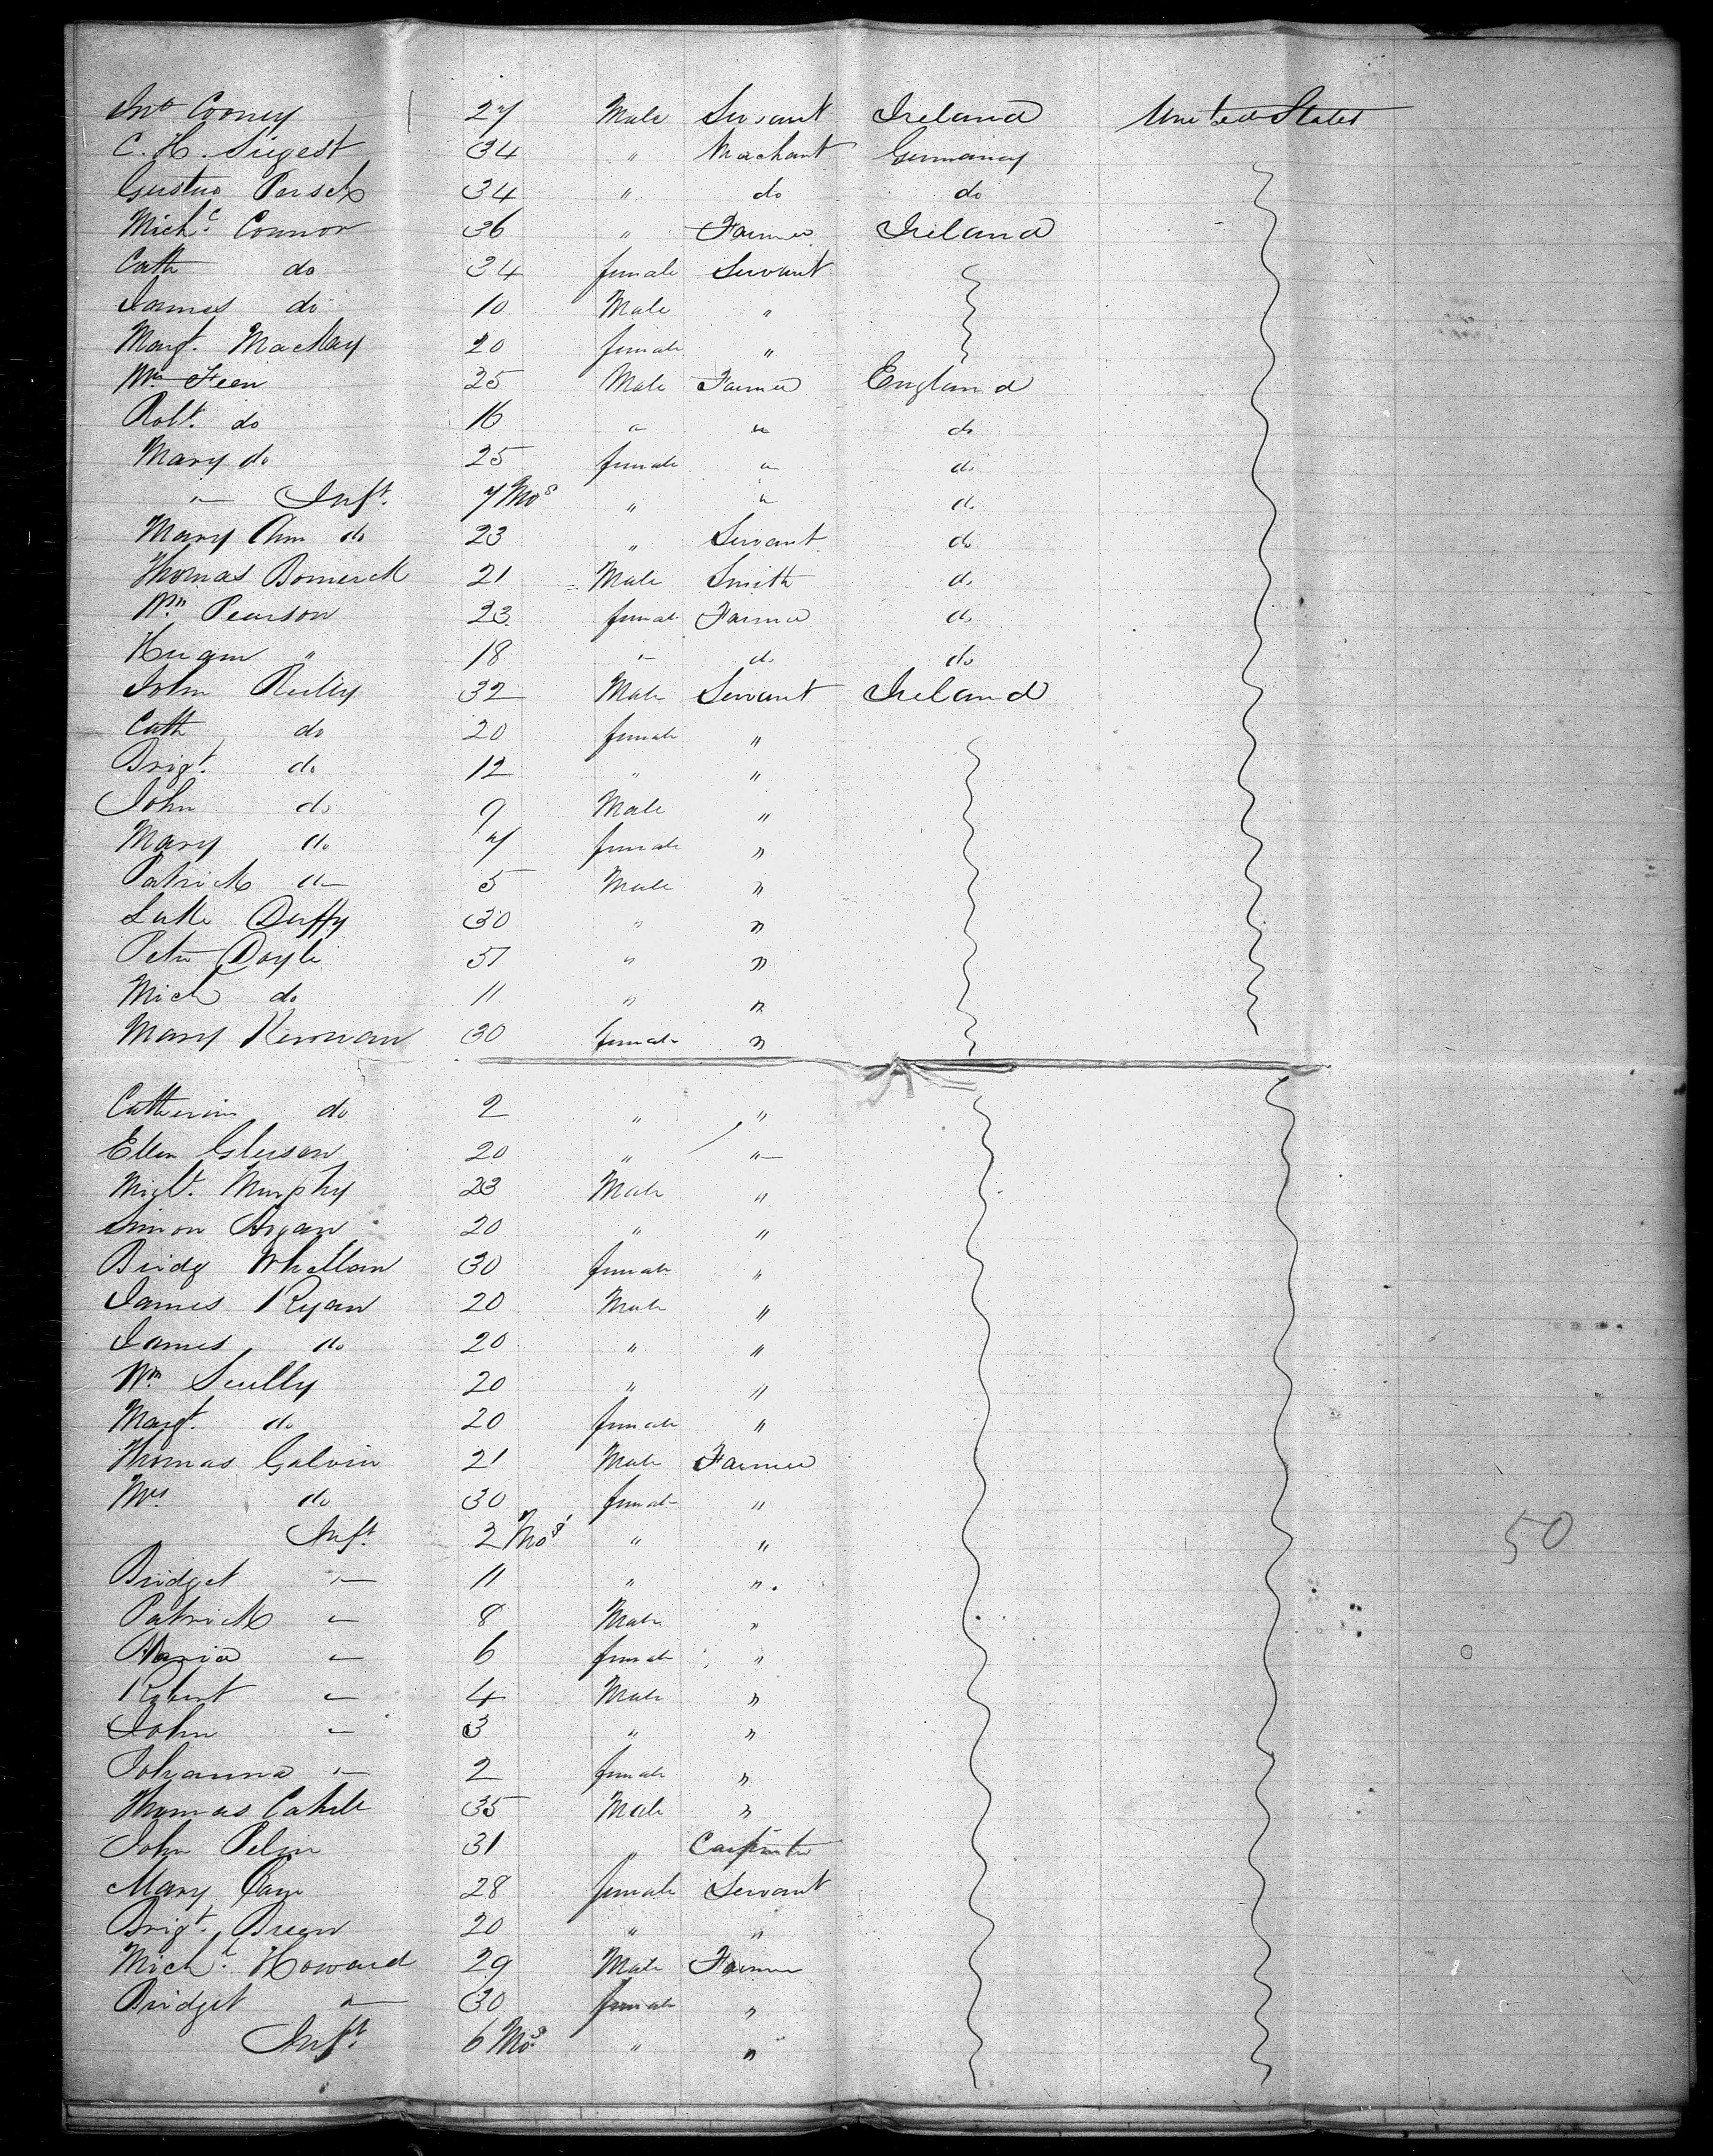 Jno Cooney 27 Male Servant Ireland United States
C. H. Siegest 34 " Merchant Germany
Gustus Persch 34 " do do
Michl Connor 36 " Farmer Ireland
Cath do 34 female Servant
James do 10 Male "
Margt. MacKay 20 female "
Wm Steen 25 Male Farmer England
Robt. do 16 " " do
Mary do 25 female " do
" Inft. 7 Mos " " do
Mary Ann do 23 " Servant do
Thomas Bomerck 21 Male Smith do
Wm Pearson 23 female Farmer do
" 18 " do do
John Reilly 32 Male Servant Ireland
Cath do 20 female "
Brigt. do 12 " "
John do 9 Male "
Mary do 7 female "
Patrick do 5 Male "
Luke Duffy 30 " "
Peter Doyle 51 " "
Mich do 11 " "
Mary Kerowan 30 female "
Catherine do 2 " "
Ellen Gleeson 20 " "
Migl. Murphy 23 Male "
Simon Ryan 20 " "
Bridg Whellan 30 female "
James Ryan 20 Male "
James do 20 " "
Wm Scully 20 " "
Margt. do 20 female "
Thomas Galvin 21 Male Farmer
Mrs do 30 female "
Inft. 2 Mos " "
Bridget " 11 " "
Patrick " 8 Male "
Maria " 6 female "
Robert " 4 Male "
John " 3 " "
Johanna " 2 female "
Thomas Cahill 35 Male "
John Pelin 31 " Carpenter
Mary 28 female Servant
Brigt. Breen 20 " "
Michl. Howard 29 Male Farmer
Bridget " 30 female "
Inft. 6 Mos. " "
50